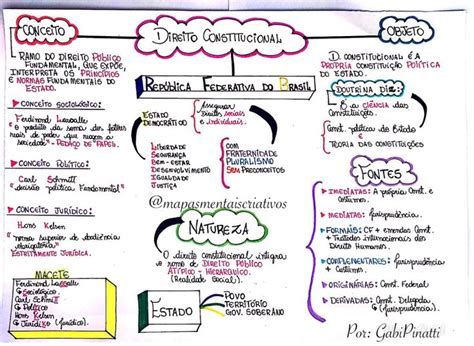 CONCEITO
RAMO DO DIREITO PÚBLICO
FUNDAMENTAL, QUE EXPÕE,
INTERPRETA OS PRINCÍPIOS
E NORMAS FUNDAMENTAIS DO
ESTADO.
CONCEITO SOCIOLÓGICO:
Ferdinand Lassalle
"o produto da soma dos fatores
reais de poder que regem a
sociedade" - PEDAÇO DE PAPEL.
CONCEITO POLÍTICO:
Carl Schmitt
"decisão política Fundamental"
CONCEITO JURÍDICO:
Hans Kelsen
"norma superior de obediência
obrigatória"
ESTRITAMENTE JURÍDICA.
MACETE
Ferdinand Lassalle
Sociológico
Carl Schmitt
Político
Hans Kelsen
Jurídiko (jurídico).
DIREITO CONSTITUCIONAL
REPÚBLICA FEDERATIVA DO BRASIL
ESTADO
DEMOCRÁTICO
Assegurar
Direitos sociais
e individuais.
LIBERDADE
SEGURANÇA
BEM-ESTAR
DESENVOLVIMENTO
IGUALDADE
JUSTIÇA
COM
FRATERNIDADE
PLURALISMO
SEM PRECONCEITOS
@mapasmentaiscriativos
NATUREZA
O direito constitucional integra
o ramo de DIREITO PÚBLICO
ATÍPICO - HIERÁRQUICO.
(Realidade Social)
ESTADO
POVO
TERRITÓRIO
GOV. SOBERANO
OBJETO
D. CONSTITUCIONAL É A
PRÓPRIA CONSTITUIÇÃO POLÍTICA
DO ESTADO.
DOUTRINA DIZ:
É a CIÊNCIA das
CONSTITUIÇÕES
Const. política do Estado
e
TEORIA DAS CONSTITUIÇÕES
FONTES
IMEDIATAS: A própria Const. e
Costumes.
MEDIATAS: jurisprudência.
FORMAIS: CF + emendas Const.
+ Tratados internacionais dos
Direitos Humanos.
COMPLEMENTARES: jurisprudência
+ Costumes.
ORIGINÁRIAS: CF
DERIVADAS: Const. Delegada
(jurisprudência).
Por: GabiPinatti